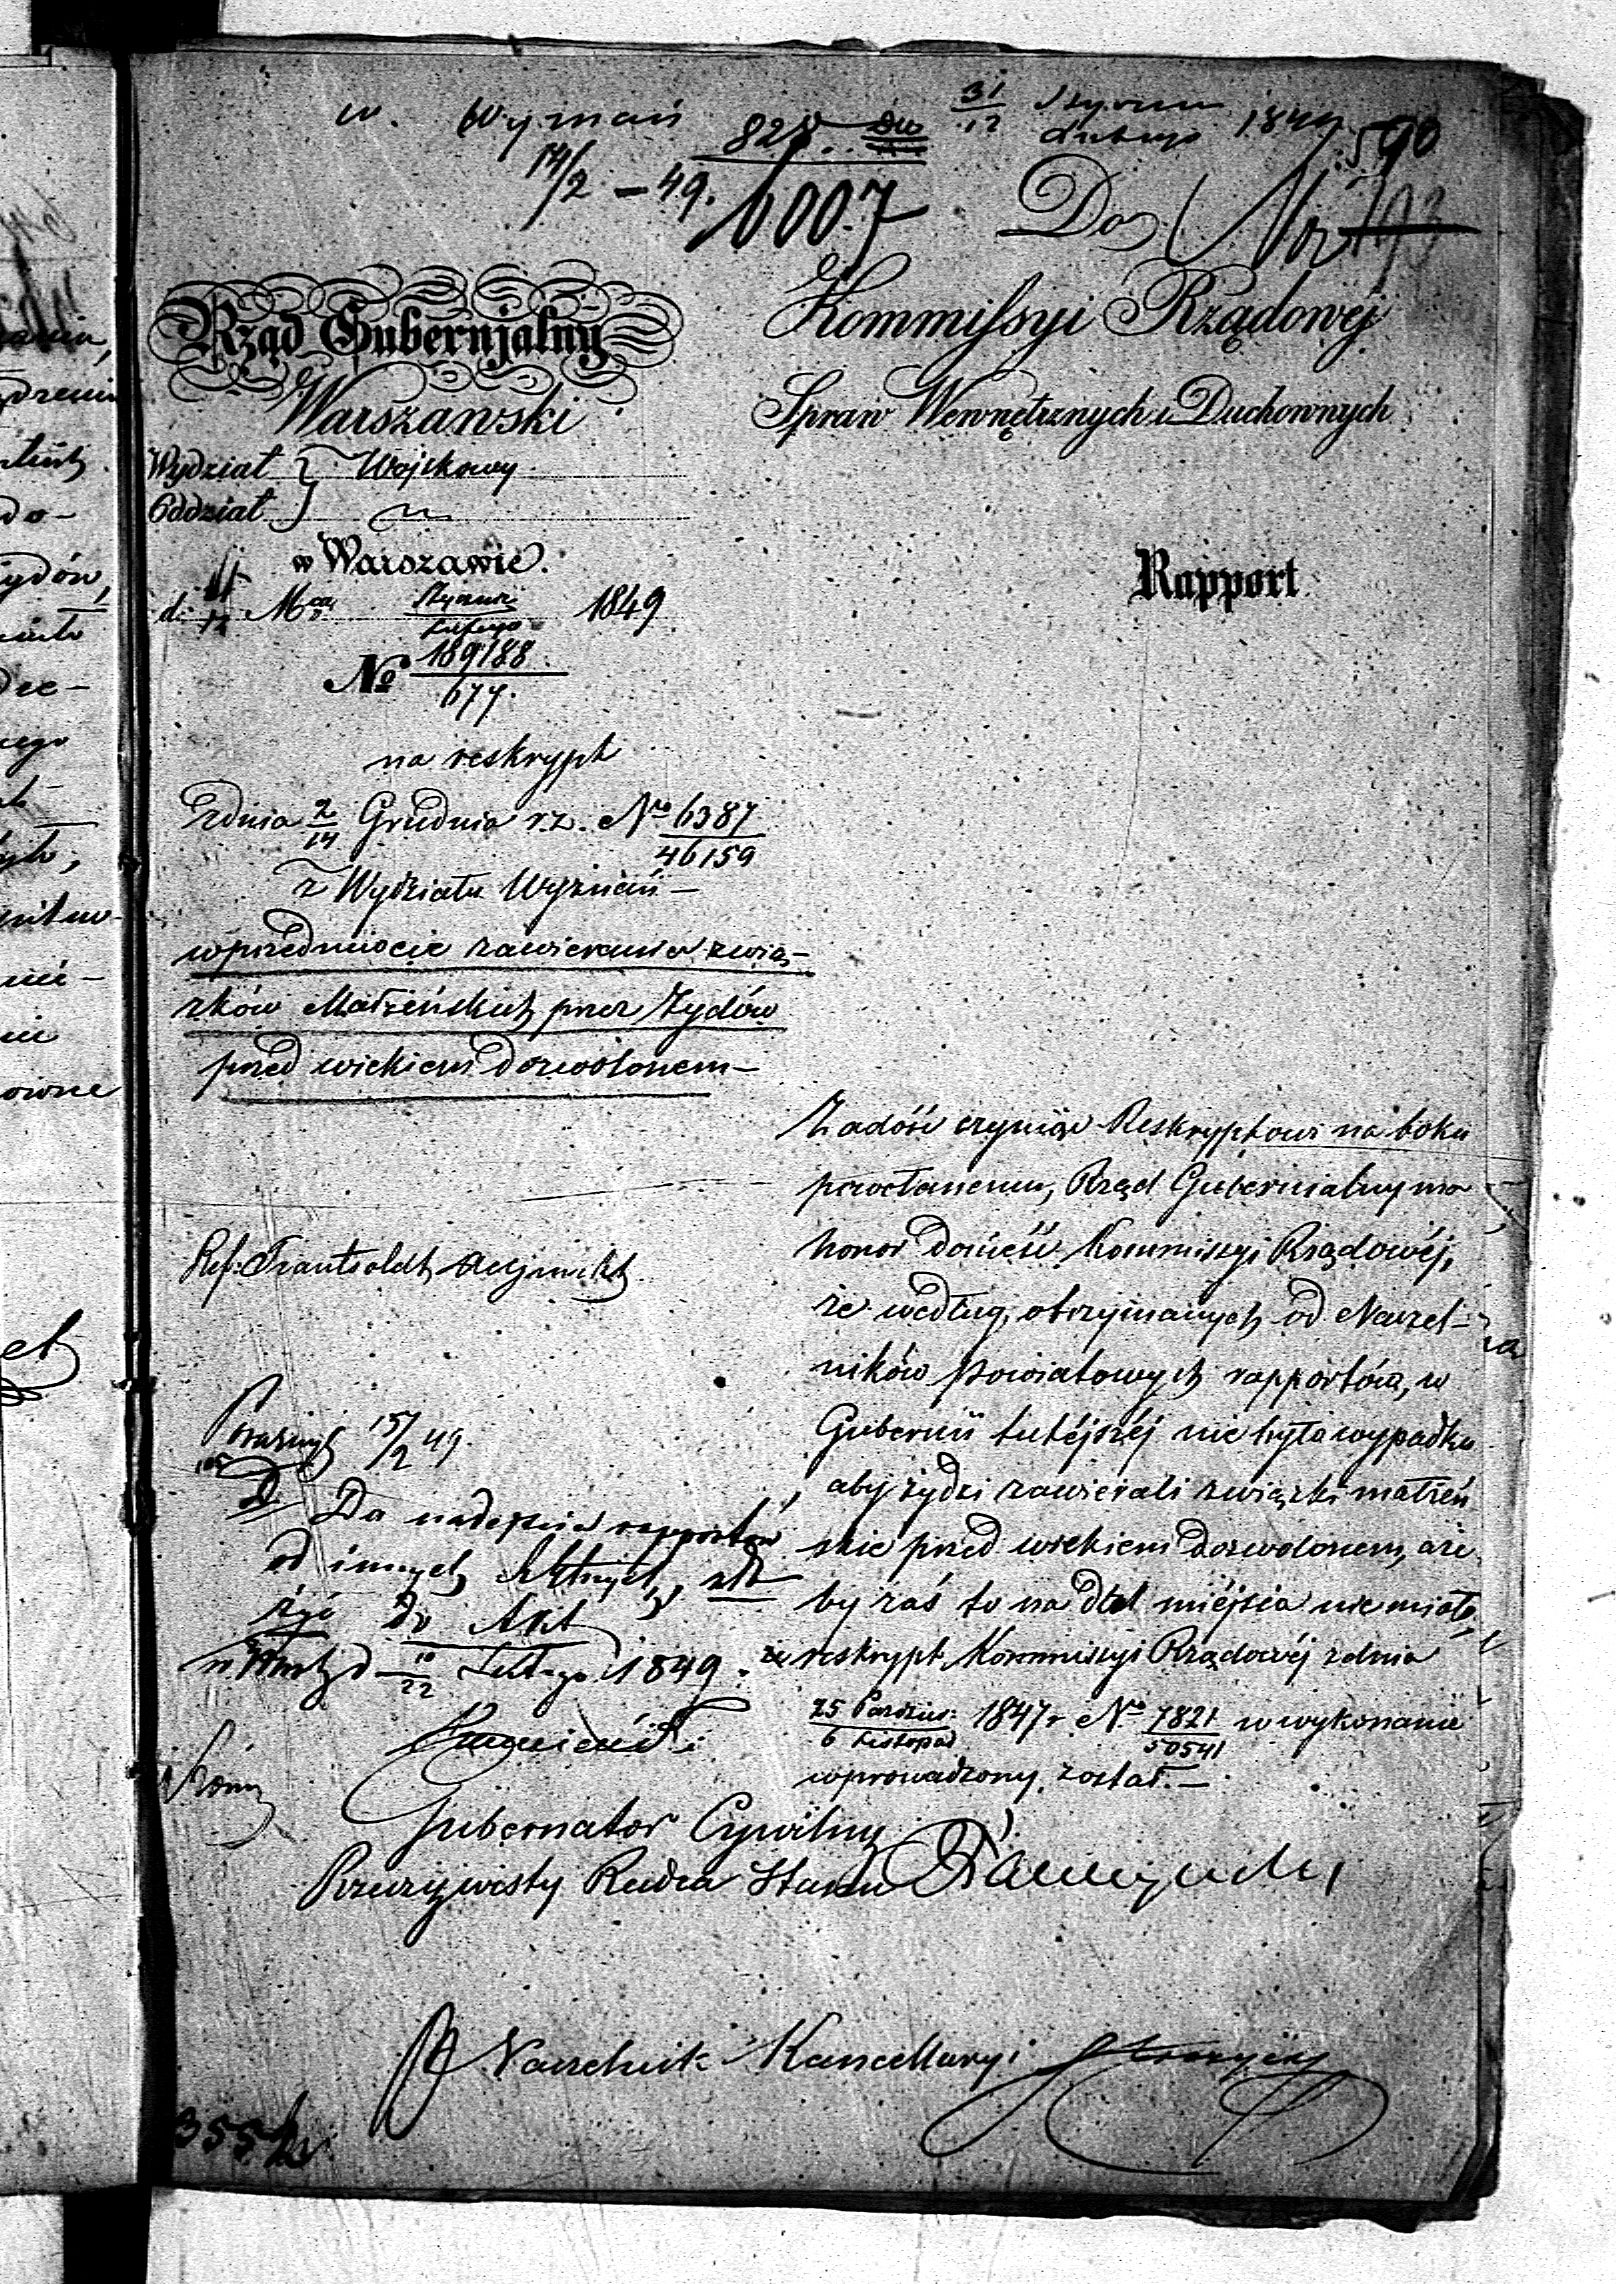 w. Wyznań
14/2 – 49.
828
6007
31/12 Stycznia
Lutego 1849
590
Do
Kommissyi Rządowej
Spraw Wewnętrznych i Duchownych
Rząd Gubernjalny
Warszawski
Wydział } Wojskowy
Oddział
w Warszawie.
d. Mca Stycznia
Lutego 1849
No 189188
677.
na reskrypt
z dnia 2/14 Grudnia r. z. Nro 6387
46159
z Wydziału Wyznań –
w przedmiocie zawierania zwią–
zków Małżeńskich przez Żydów
przed wiekiem dozwolonem –
Rapport
Zadość czyniąc Reskryptowi na boku
powołanemu, Rząd Gubernialny ma
honor donieść Kommissyi Rządowéj,
że według otrzymanych od Naczel–
ników Powiatowych rapportów, w
Gubernii tutéjszéj nie było wypadku
aby żydzi zawierali związki małżeń
skie przed wiekiem dozwolonem, aże
by zaś to nadal miéjsca nie miało,
reskrypt Kommissyi Rządowéj z dnia
25 Paździer:
6 Listopad 1847 r Nro 7821
50541 w wykonanie
wprowadzony został. –
Ref:
15/2 49.
Do nadejścia rapportów
od innych
do Akt
d 10/22 Lutego 1849.
Gubernator Cywilny
Rzeczywisty Radca Stanu
Naczelnik Kancellaryi